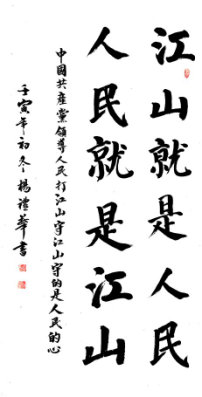 江山就是人民
人民就是江山
中國共產黨領導人民打江山守江山守的是人民的心
壬寅年初冬楊禮華書